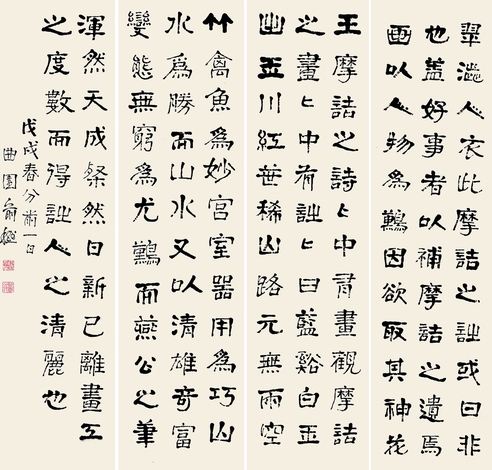 翠濕人衣此摩詰之詩或曰非
也蓋好事者以補摩詰之遺焉
画以人物為難因欲取其神花
王摩詰之詩〻中有畫觀摩詰
之畫〻中有詩〻曰藍谿白玉
出玉川紅葉稀山路元無雨空
竹禽魚為妙宮室器用為巧山
水為勝而山水又以清雄奇富
變態無窮為尤難而燕公之筆
渾然天成粲然日新已離畫工
之度數而得詩人之清麗也
戊戌春分前一日
曲園俞樾